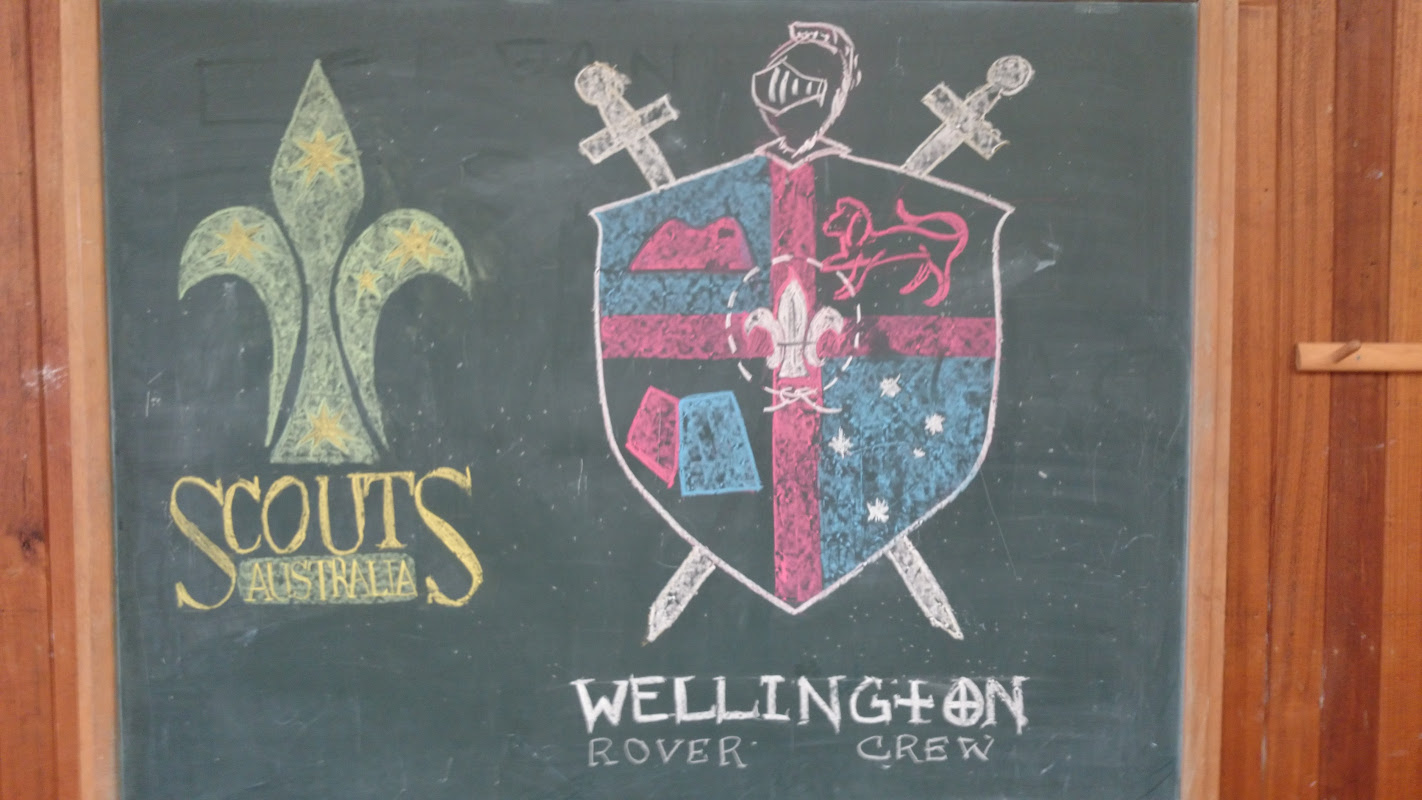 SCOUTS
AUSTRALIA
WELLINGTON
ROVER CREW